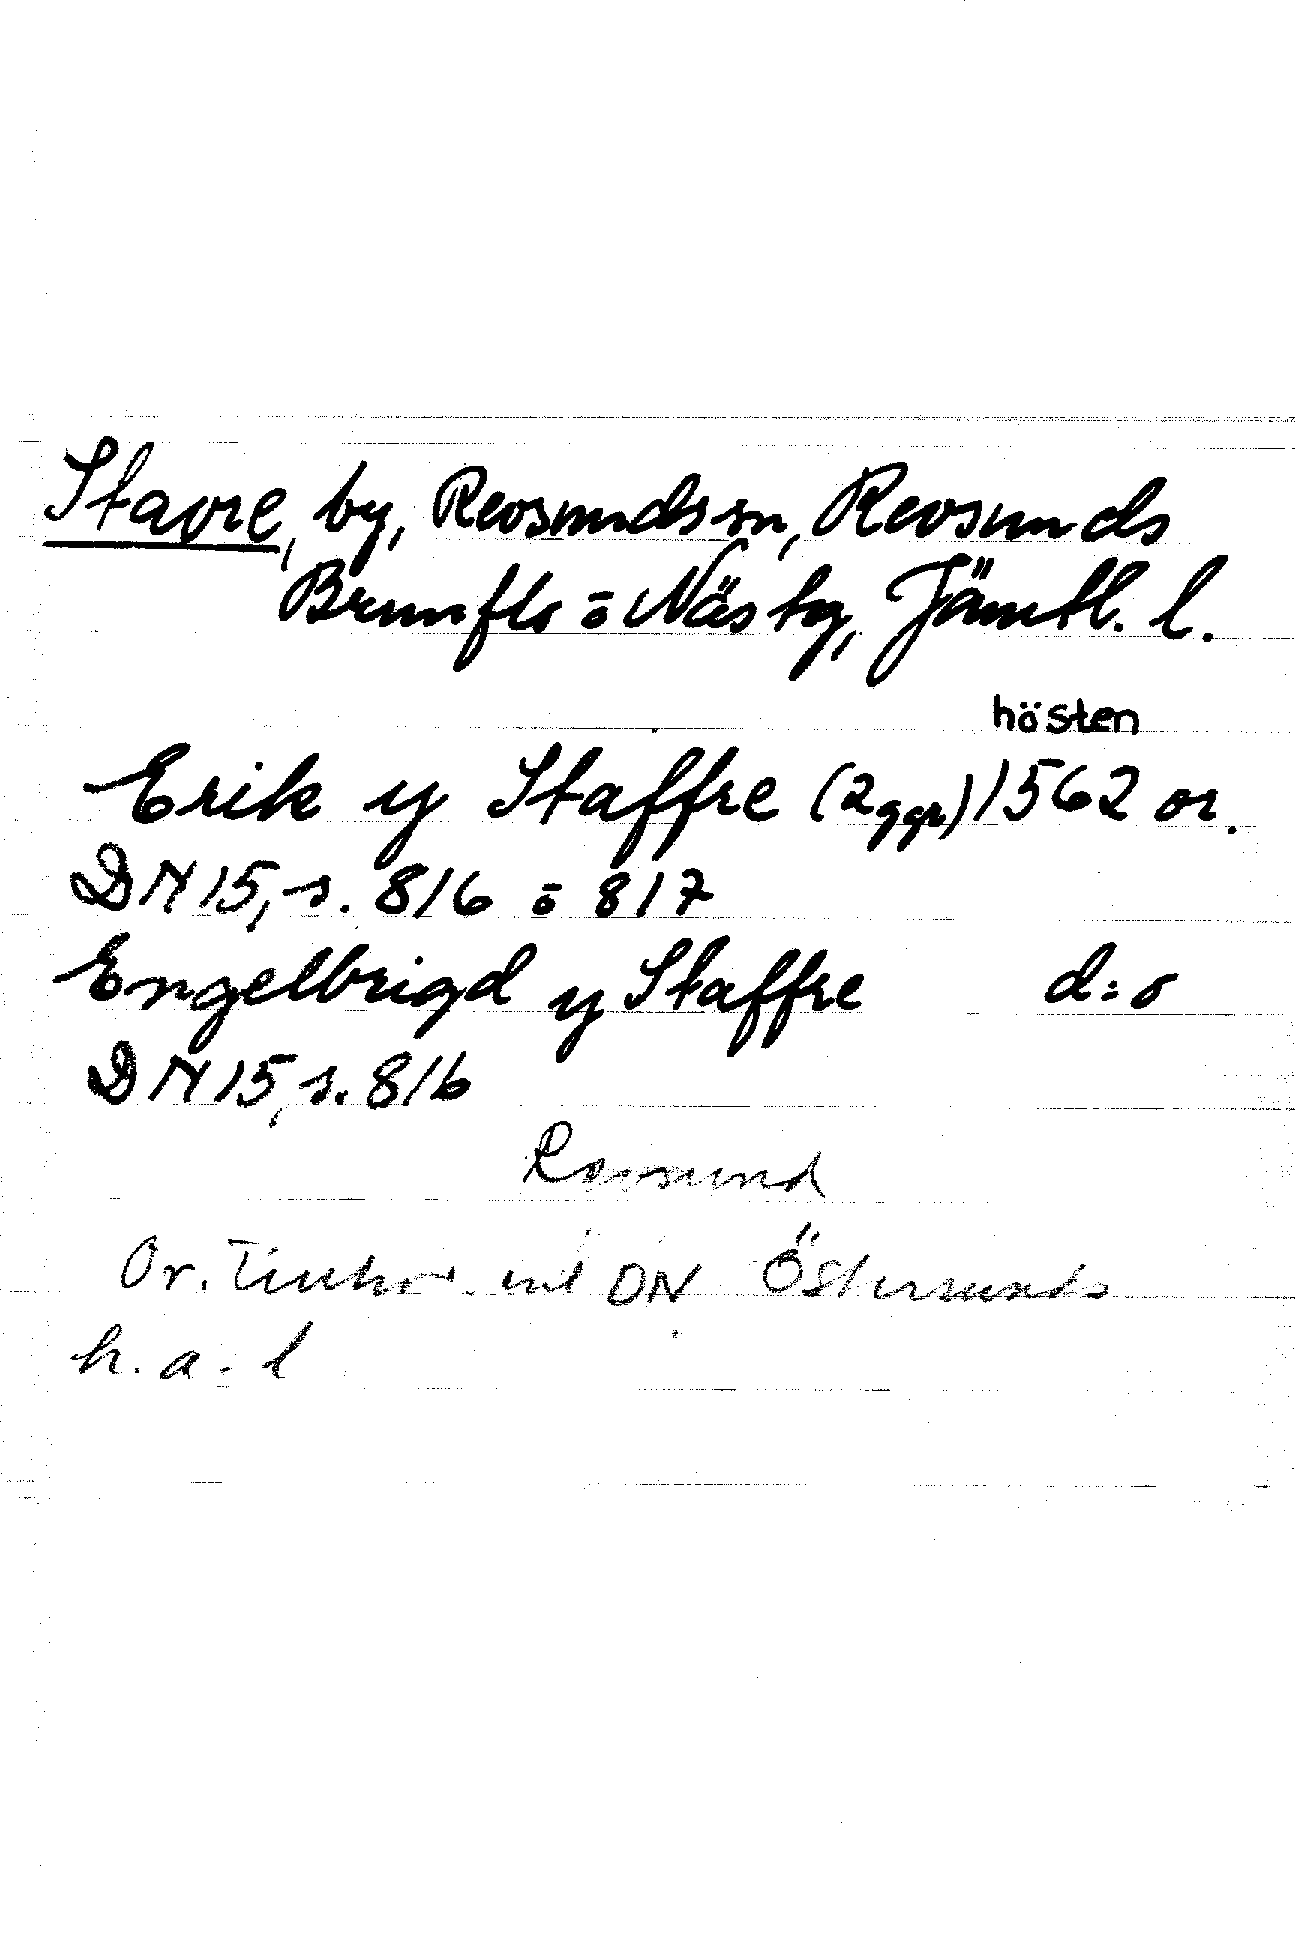 Stavre, by, Revsunds sn, Revsunds
Brunflo o Näs tg, Jämtl. l.
hösten
Erik y Staffre (2 ggr) 1562 or.
DN 15, s. 816 o 817
Engelbrigd y Staffre d:o
DN 15, s. 816
Revsund
Or. enl DN Östersunds
h. a. l